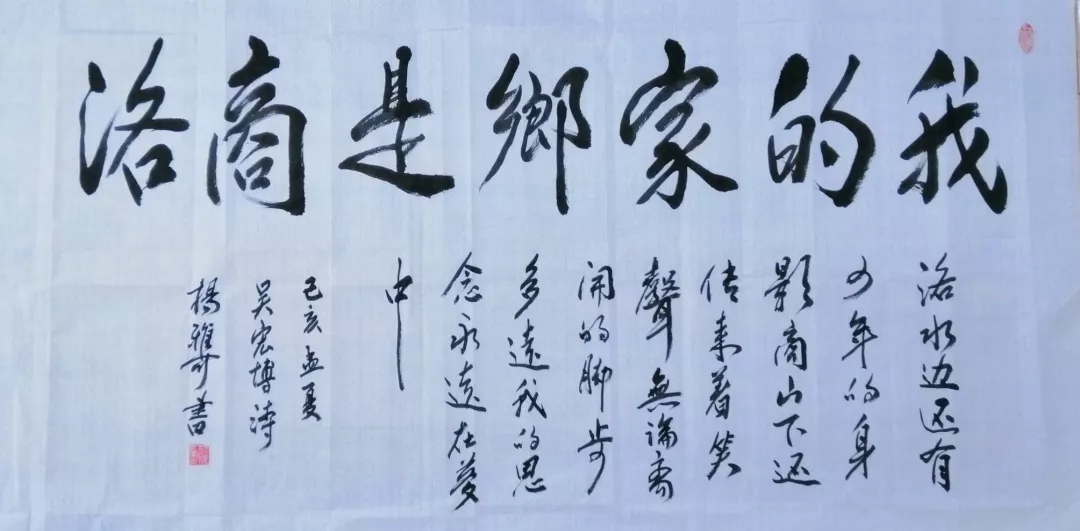 我的家鄉是商洛
洛水边还有
少年的身
影商山下还
传来着笑
聲無論离
開的脚步
多遠我的思
念永遠在夢
中
己亥孟夏
吴宏博詩
楊雅書